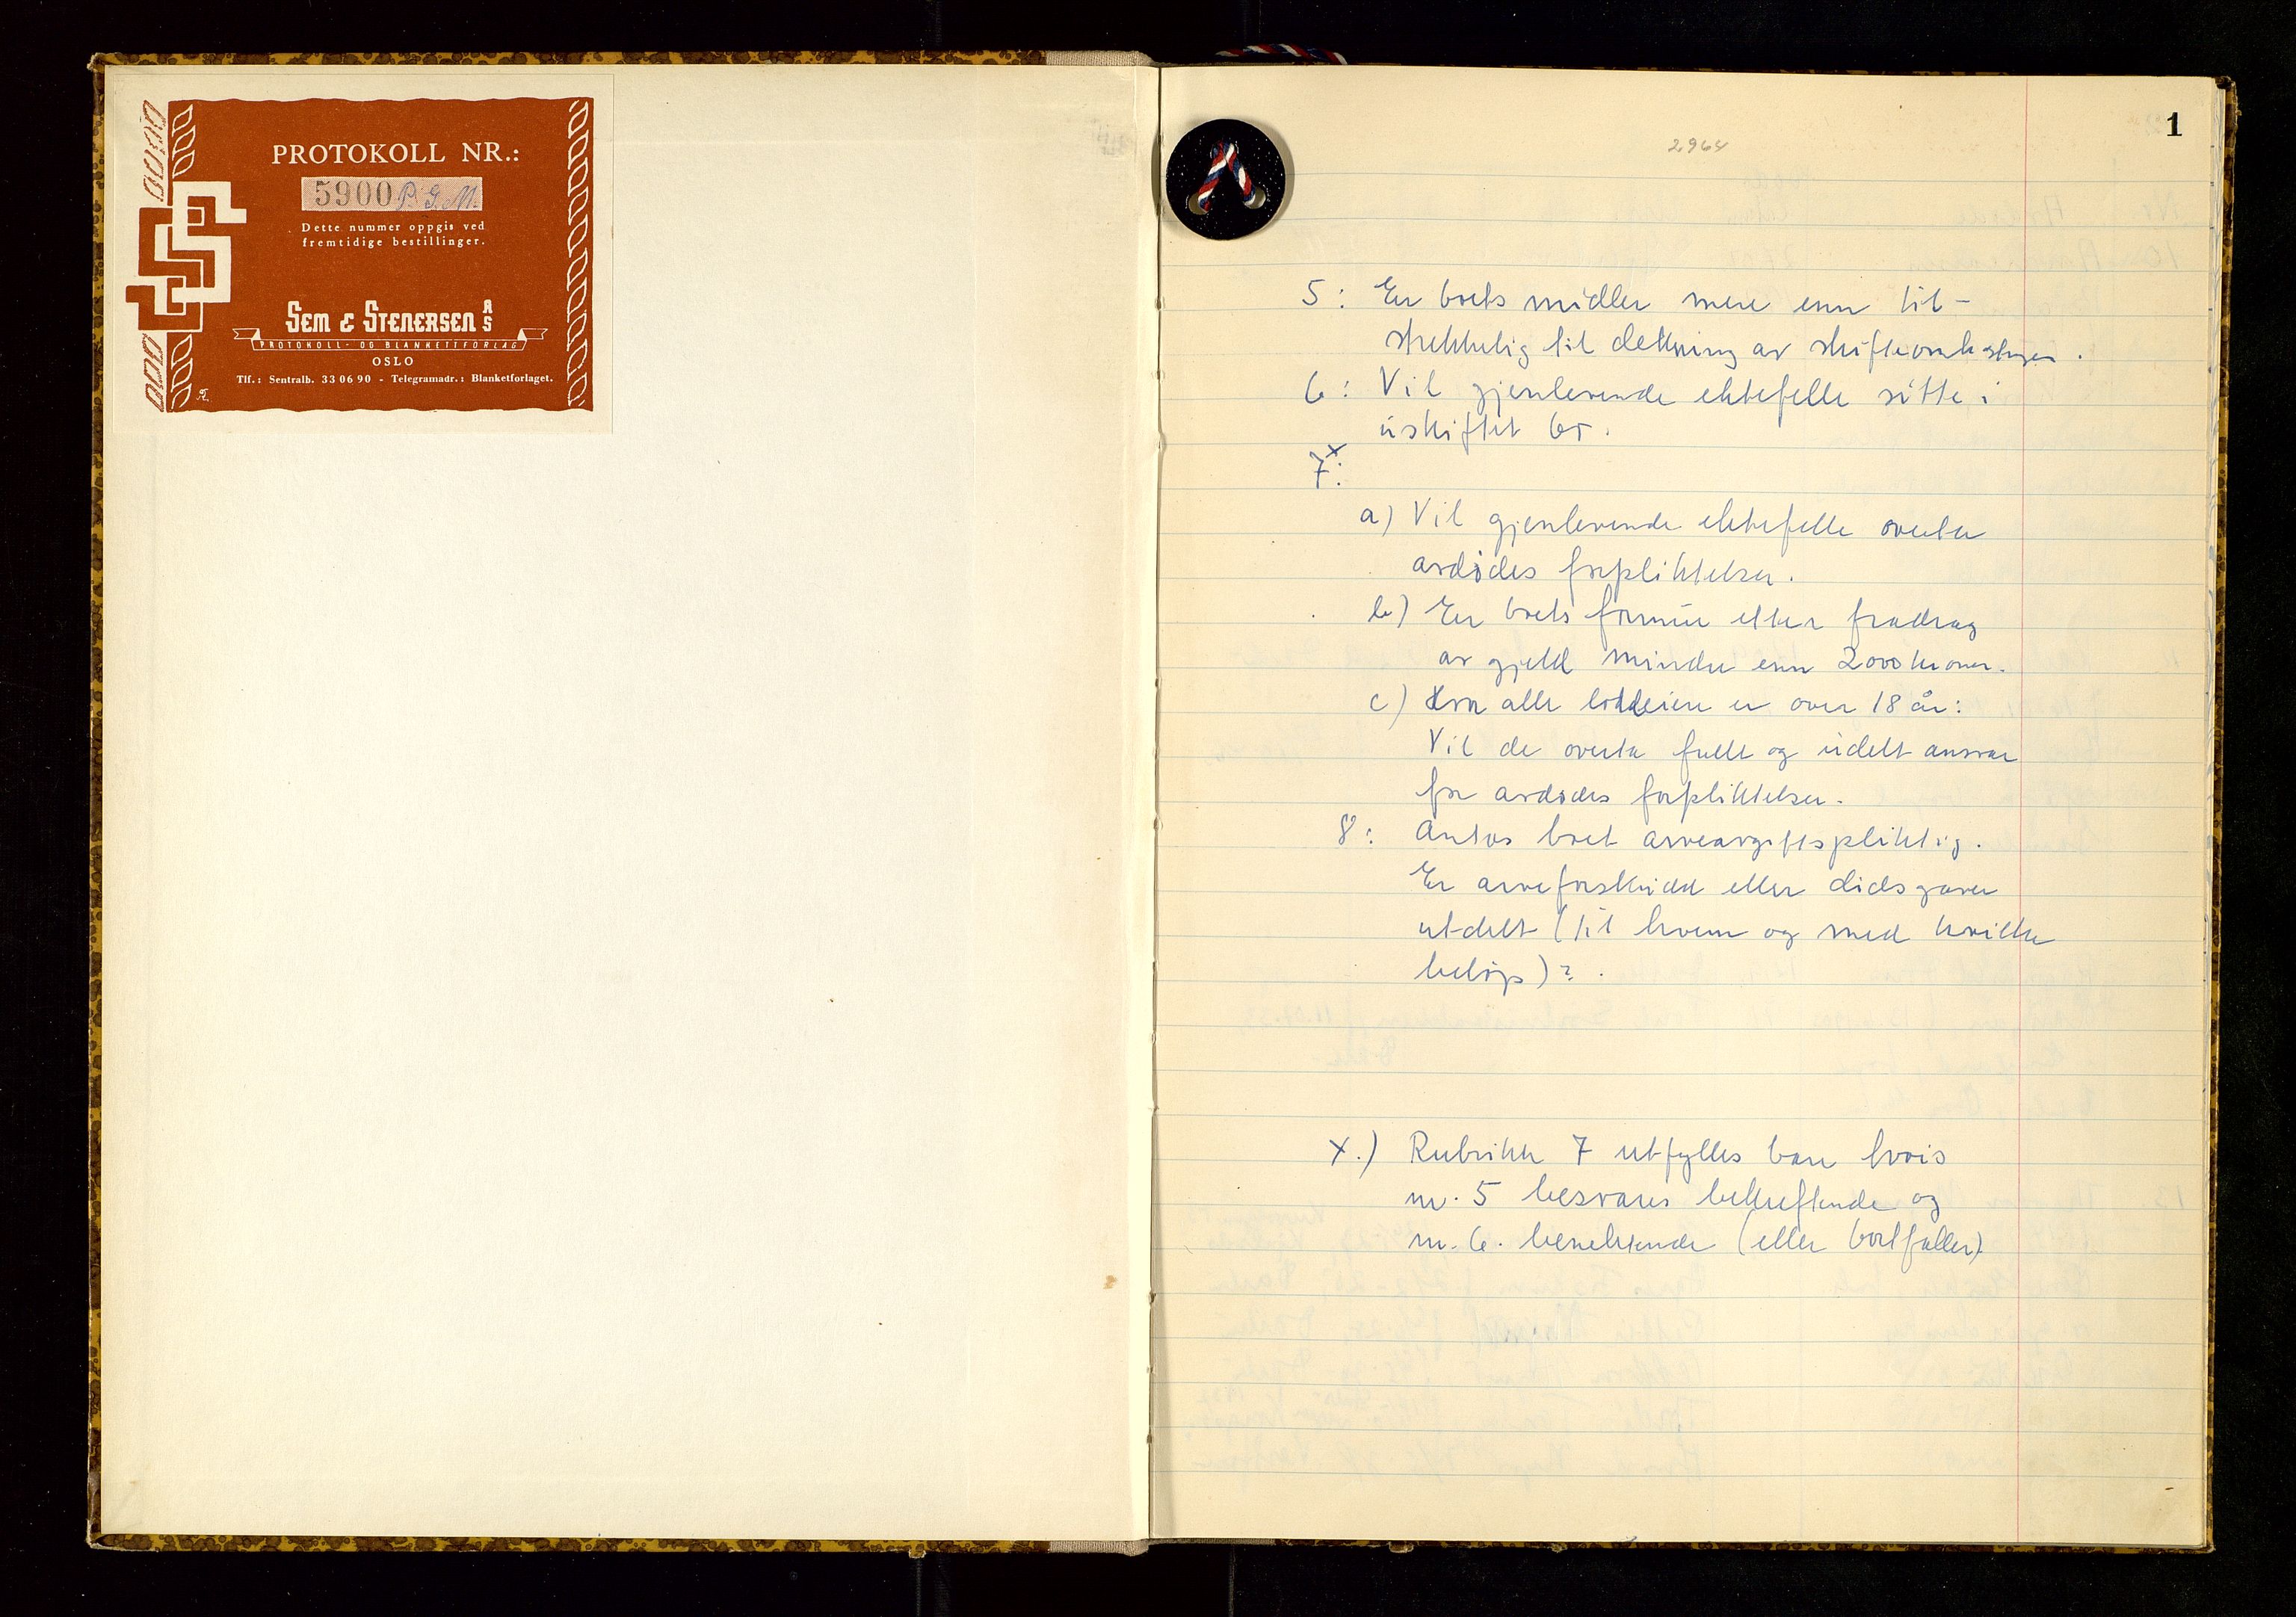 PROTOKOLL NR.:
5900 P.G.M.
Dette nummer oppgis ved
fremtidige bestillinger.
SEM & STENERSEN A/S
PROTOKOLL- OG BLANKETTFORLAG
OSLO
Tlf.: Sentralb. 33 06 90 - Telegramadr.: Blanketforlaget.
1
2964
5: Er boets midler mere enn til-
strekkelig til dekning av skifteomkostningen.
6: Vil gjenlevende ektefelle sitte i
uskiftet bo.
7x:
a) Vil gjenlevende ektefelle overta
avdødes forpliktelser.
b) Er boets formue etter fradrag
av gjeld mindre enn 2000 kroner.
c) Hvor alle loddeiere er over 18 år:
Vil de overta fullt og udelt ansvar
for avdødes forpliktelser.
8: Antas boet arveavgiftspliktig.
Er arveforskudd eller dødsgaver
utdelt (til hvem og med hvilke
beløp)?.
x.) Rubrikk 7 utfylles bare hvis
nr. 5 besvares bekreftende og
nr. 6. benektende (eller bortfaller)